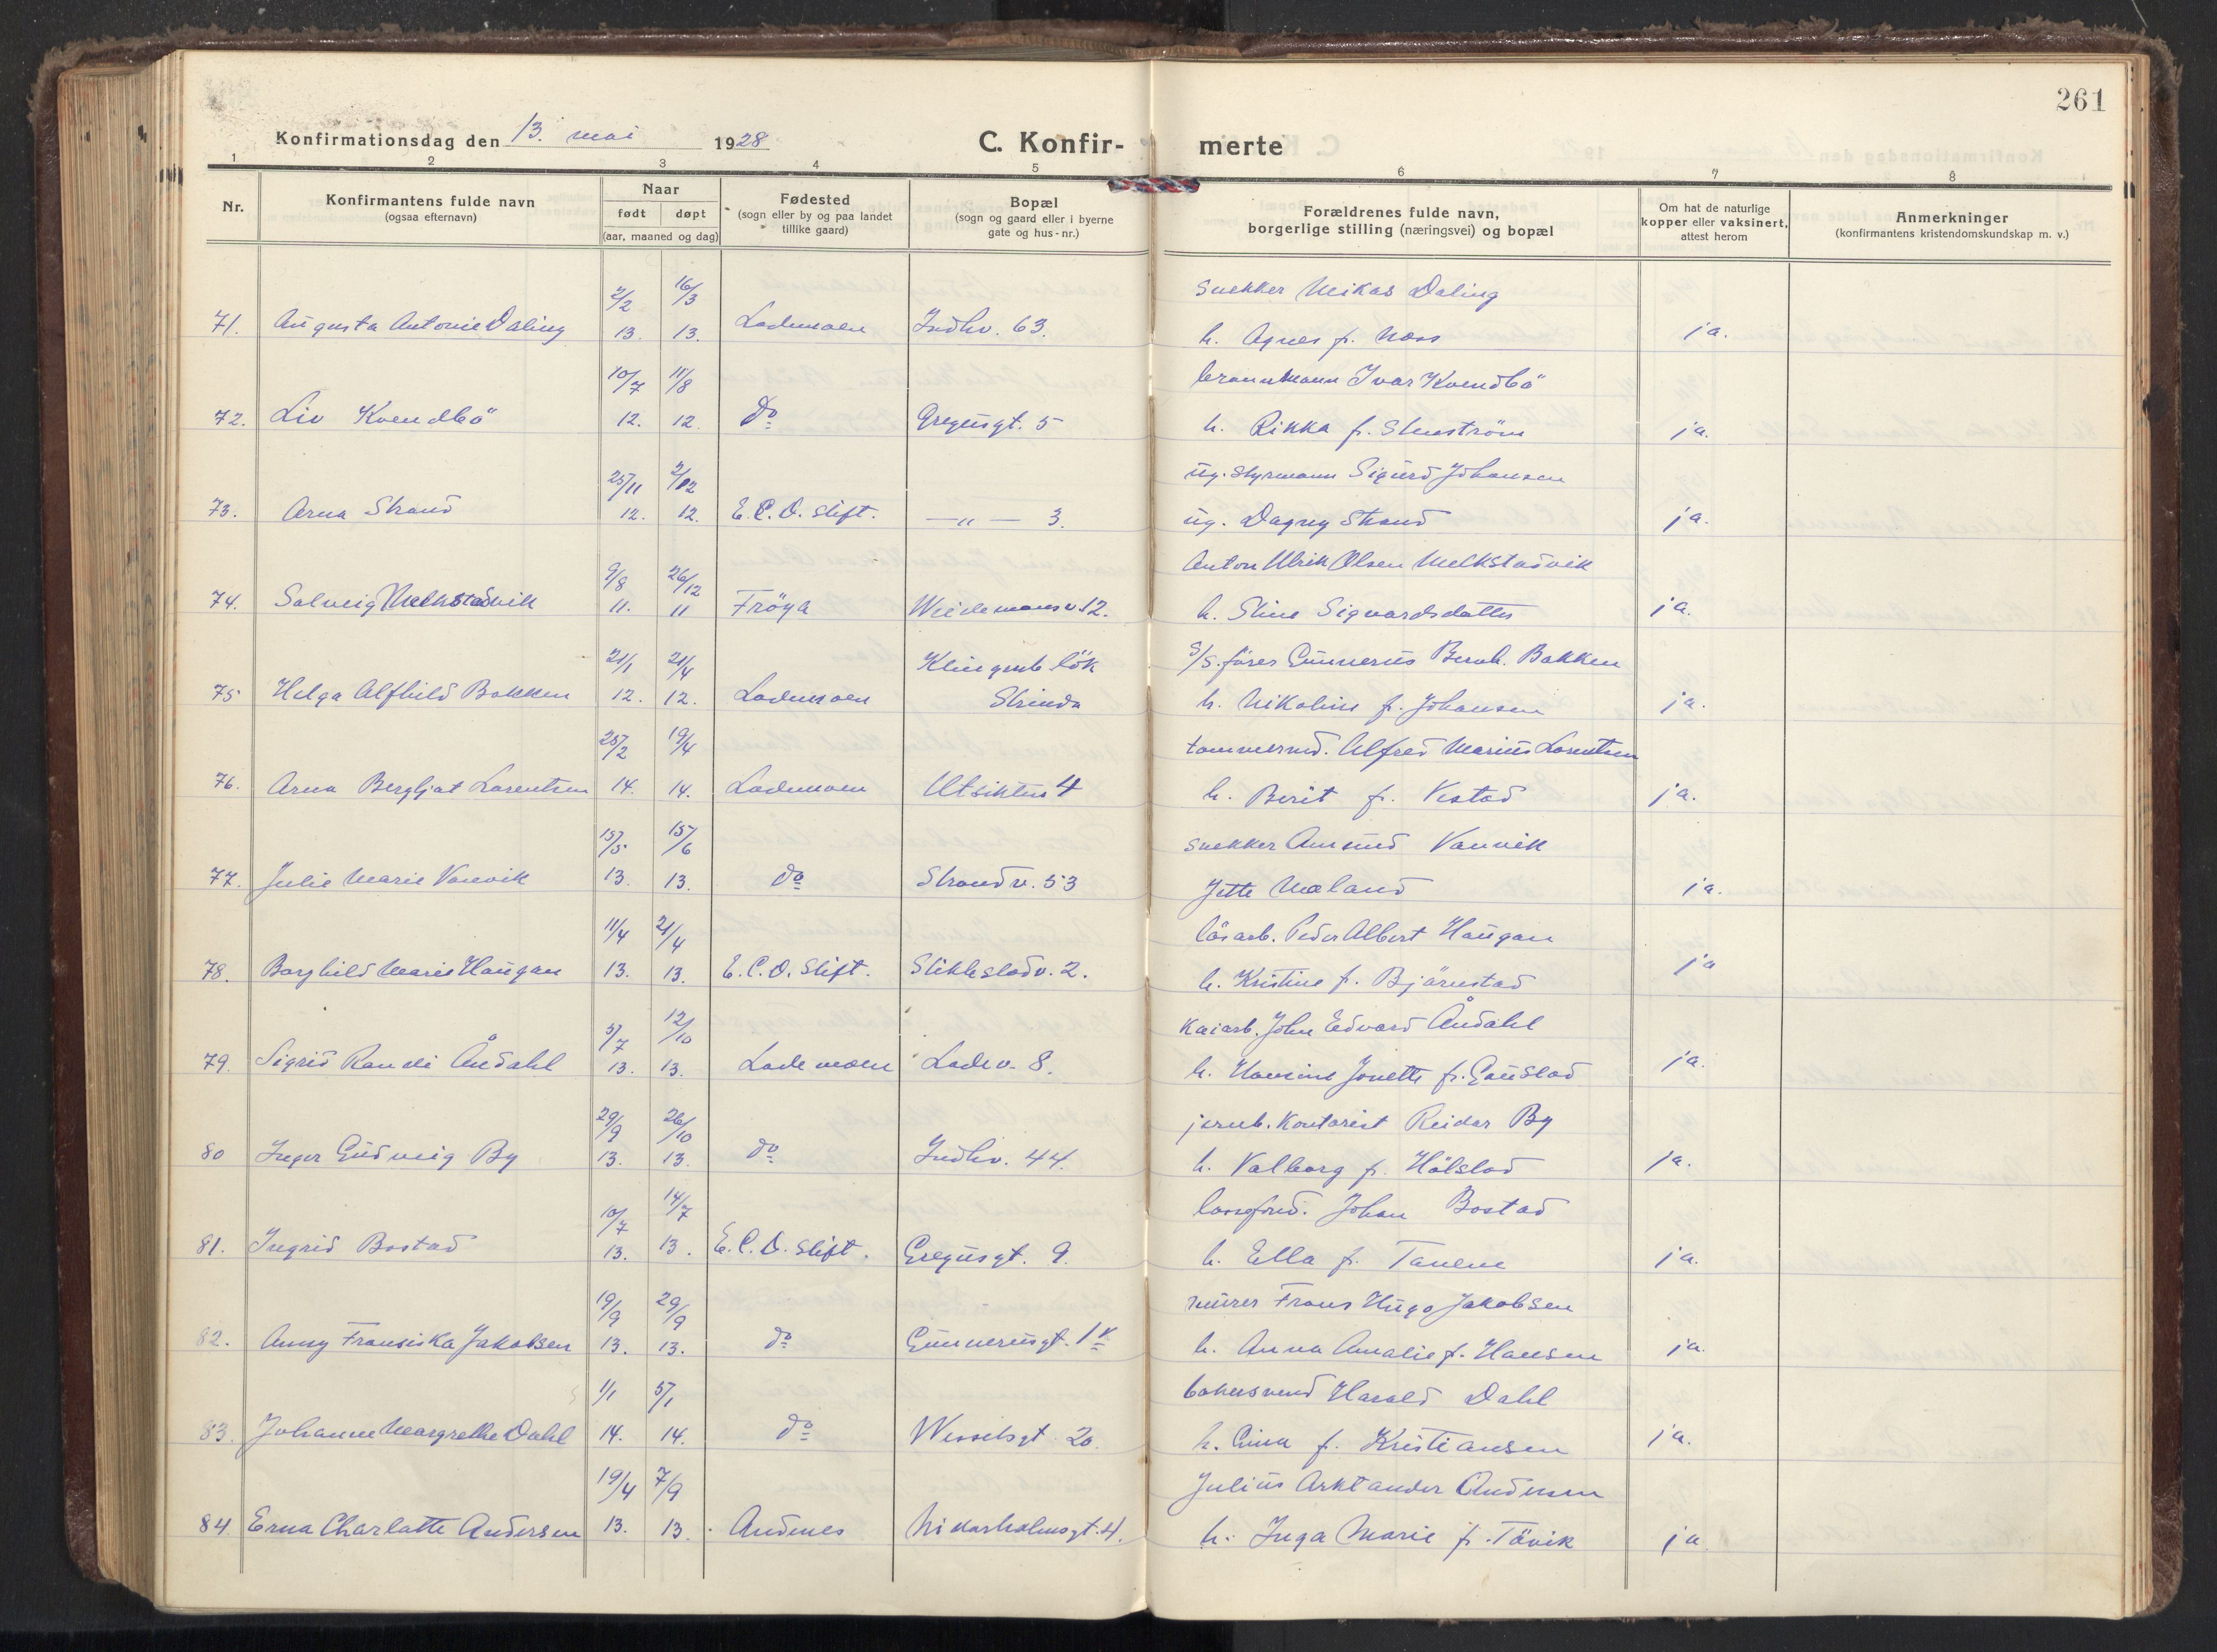 261
Konfirmationsdag den 13. mai 1928
C. Konfir-merte
1 2 3 4 5 6 7 8
Nr.
Konfirmantens fulde navn
(ogsaa efternavn)
Naar
født døpt
(aar, maaned og dag)
Fødested
(sogn eller by og paa landet
tillike gaard)
Bopæl
(sogn og gaard eller i byerne
gate og hus-nr.)
Forældrenes fulde navn,
borgerlige stilling (næringsvei) og bopæl
Om hat de naturlige
kopper eller vaksinert,
attest herom
Anmerkninger
(konfirmantens kristendomskundskap m. v.)
2/2 16/3 snekker Mikas Daling
71. Augusta Antonie Daling 13. 13. Lademoen Indhv. 63. h. Agnes f. Moss ja.
10/7 11/8 brannmann Ivar Kvendbö
72. Liv Kvendbö 12. 12. do Gregusgt. 5 h. Rikka f. Stenström ja.
25/11 2/12 ug. styrmann Sigurd Johansen
73. Arna Strand 12. 12. E.C.D. stift. —"— 3. ug. Dagny Strand ja.
9/8 26/12 Anton Ulrik Olsen Melkstadvik
74. Solveig Melkstadvik 11. 11 Fröya Wiedemansv. 12. h. Stine Sigvardsdatter ja.
21/1 21/4 Klingenb. lök S/S. förer Gunnerus Bernh. Bakken
75 Helga Alfhild Bakken 12. 12. Lademoen Strinda h. Nikoline f. Johansen ja.
25/2 19/4 tömmermd. Alfred Marius Lorentsen
76. Arna Bergljot Lorentsen 14. 14. Lademoen Utsikten 4 h. Berit f. Vestad ja.
15/5 15/6 snekker Amund Vanvik
77. Julie Marie Vanvik 13. 13. do Strandv. 53 Jette Mæland ja.
11/4 21/4 lösarb. Peder Albert Haugan
78. Borghild Marie Haugan 13. 13. E.C.D. stift. Stiklestadv. 2. h. Kristine f. Björnstad ja
5/7 12/10 Kaiarb. John Edvard Åndahl
79. Sigrid Randi Åndahl 13. 13. Lademoen Ladev. 8. h. Hansine Jonette f. Gaustad ja.
29/9 26/10 jernb. Kontorist Reidar By
80 Inger Gudveig By 13. 13. do Indhv. 44. h. Valborg f. Hölstad ja.
10/7 14/7 Johan Bostad
81. Ingrid Bostad 13. 13. E.C.D. stift. Gregusgt. 9. h. Ella f. Tanem ja.
19/9 29/9 murer Frans Hugo Jakobsen
82. Anny Fransiska Jakobsen 13. 13. do Gunnerusgt. 1 h. Anna Amalie f. Hansen ja.
1/1 5/1 bakersvend Harald Dahl
83. Johanne Margrethe Dahl 14. 14. do Wesselsgt. 20. h. f. Kristiansen ja.
19/4 7/9 Julius Arktander Andersen
84. Erna Charlotte Andersen 13. 13. Andenes Nidarholmsgt. 4. h. Inga Marie f. Tövik ja.